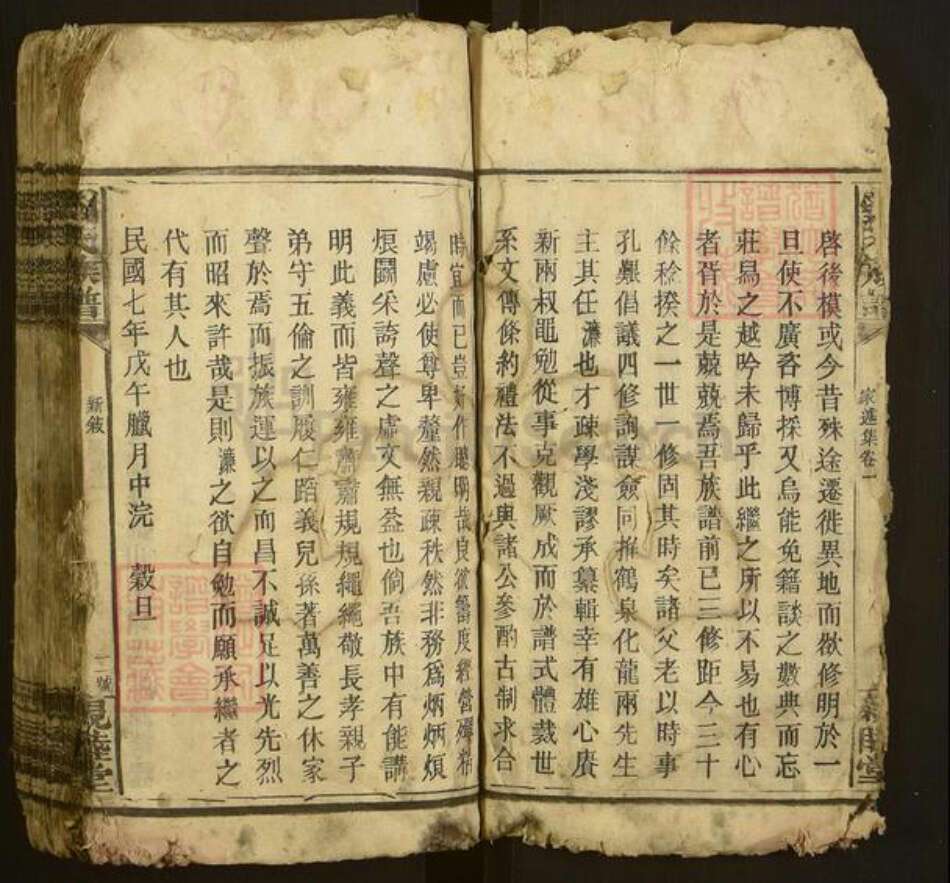 啓後模或今昔殊途遷徙異地而欲修明於一
旦使不廣咨博採又烏能免籍談之數典而忘
莊舃之越吟未歸乎此繼之所以不易也有心
者胥於是兢兢焉吾族譜前已三修距今三十
餘稔揆之一世一修固其時矣諸父老以時事
孔艱倡議四修詢謀僉同推鶴泉化龍兩先生
主其任濂也才疎學淺謬承纂輯幸有雄心賡
新兩叔黽勉從事克觀厥成而於譜式體裁世
系文傳條約禮法不過與諸公參酌古制求合
時宜而已豈好作聰明哉良欲籌度經營殫精
竭慮必使尊卑釐然親疎秩然非務爲炳炳烺
烺鬬采誇聲之虛文無益也倘吾族中有能講
明此義而皆雍雍肅肅規規繩繩敬長孝親子
弟守五倫之訓履仁蹈義兒孫著萬善之休家
聲於焉而振族運以之而昌不誠足以光先烈
而昭來許哉是則濂之欲自勉而願承繼者之
代有其人也
民國七年戊午臘月中浣 穀旦
家乘集卷一
親睦堂
族譜
新敘
一號
親睦堂